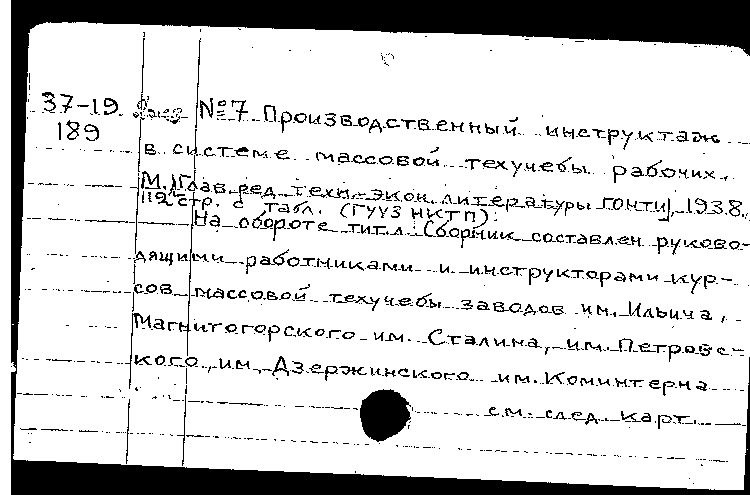 37-19 №7 Производственный инструктаж
189
в системе массовой техучебы рабочих.
М., [Глав. ред. техн.-экон. литературы ГОНТИ], 1938.
112 стр. с табл. (ГУУЗ НКТП).
На обороте тит. л. Сборник составлен руково-
дящими работниками и инструкторами кур-
сов массовой техучебы заводов им. Ильича,
Магнитогорского им. Сталина, им. Петровс-
кого, им. Дзержинского им. Коминтерна
см. след. карт.